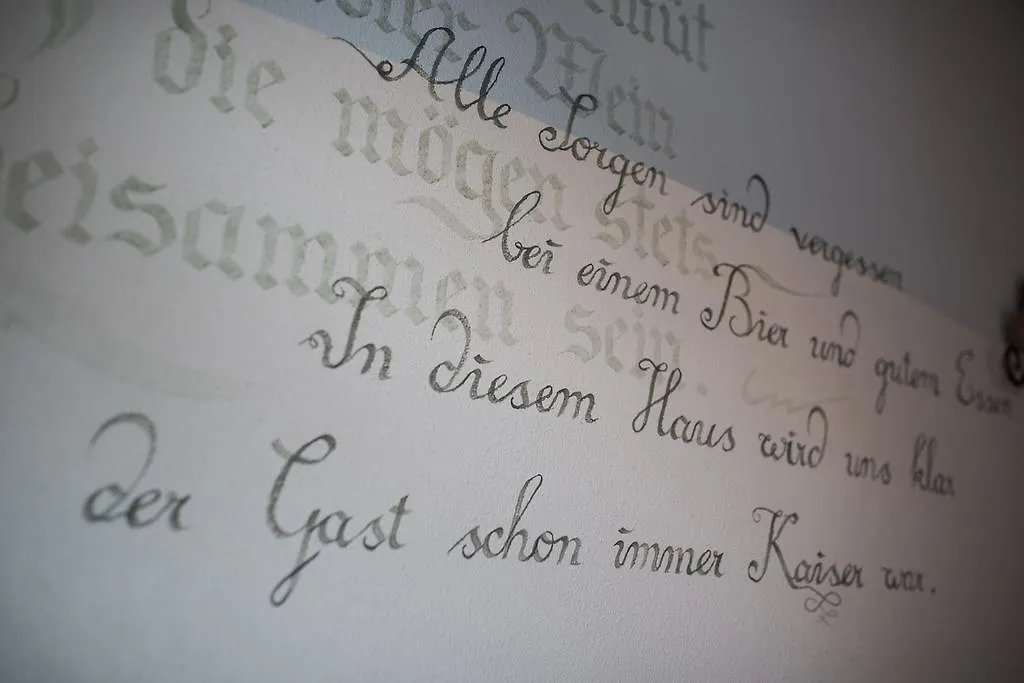 müt
Bier Wein
die mögen stets
beisammen sein.
Alle Sorgen sind vergessen
bei einem Bier und gutem Essen
In diesem Haus wird uns klar
der Gast schon immer Kaiser war.